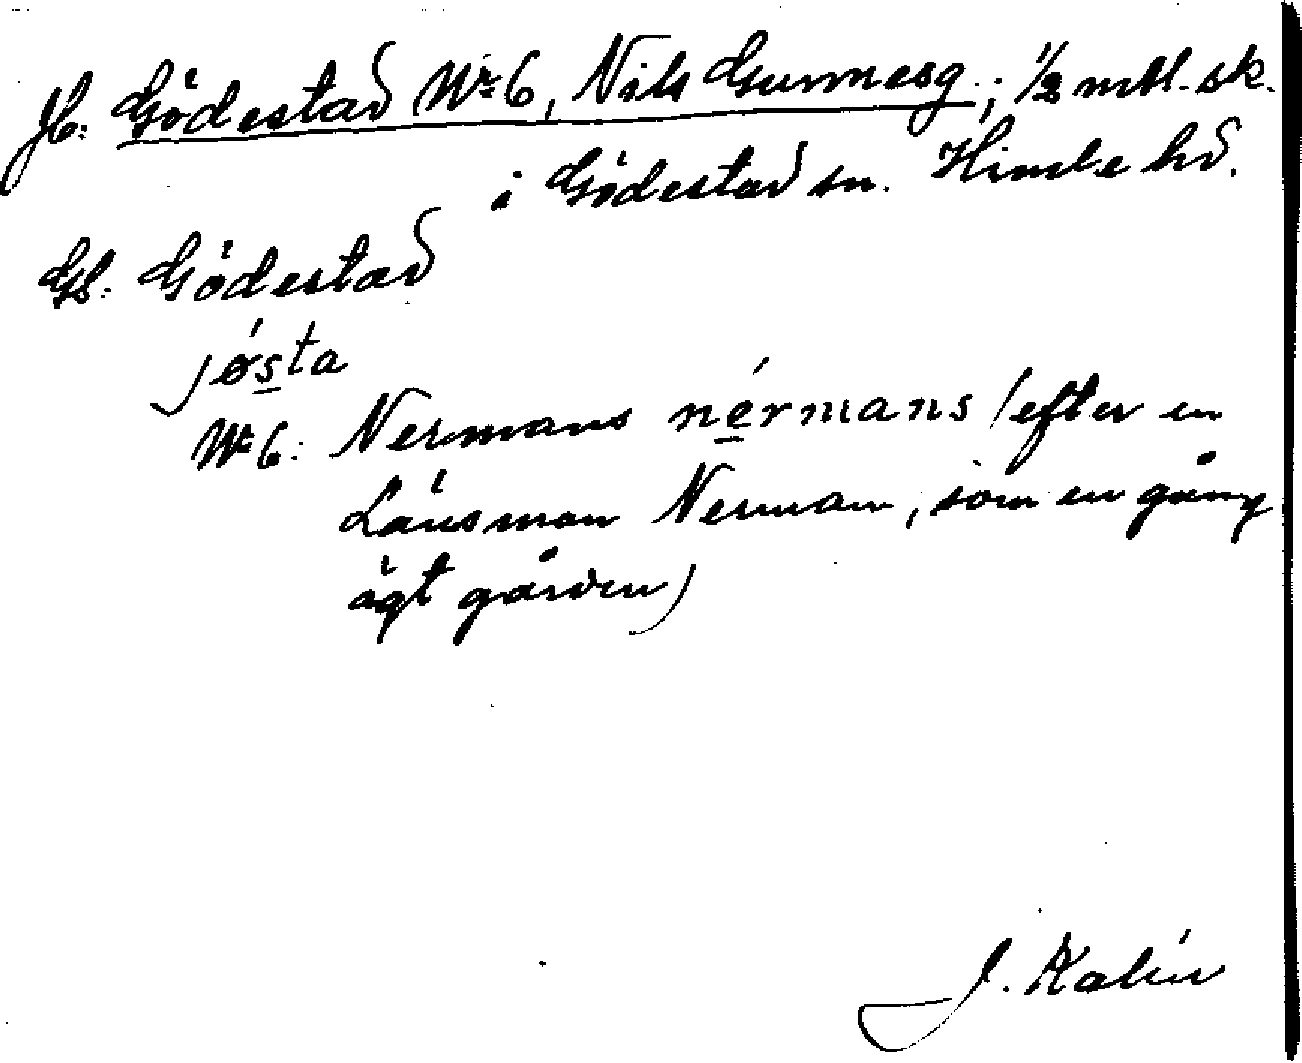 Jb: Gödestad Nr 6, Nils Gunnesg.; 1/2 mtl. sk.
i Gödestad sn. Himle hd.
Gb: Gödestad
jǿsta
Nr 6: Nermans nérmans (efter en
Länsman Nerman, som en gång
ägt gården)
J. Kalén